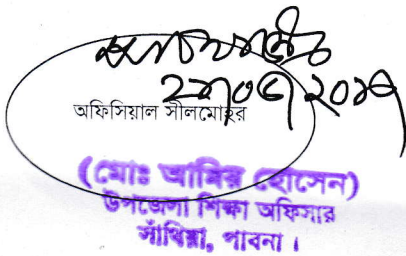 অফিসিয়াল সীলমোহর
(মোঃ আমির হোসেন)
উপজেলা শিক্ষা অফিসার
সাঁথিয়া, পাবনা।